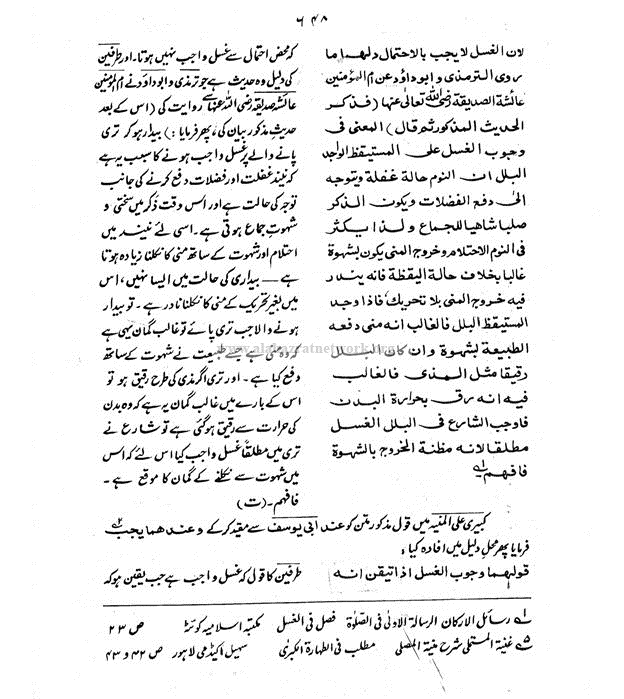 ۶۴۸
لان الغسل لايجب بالاحتمال دليلهما ما
روى الترمذى و ابوداؤد عن ام المؤمنين
عائشة الصديقة رضى الله تعالى عنها (فذكر
الحديث المذكور ثم قال) المعنى فى
وجوب الغسل على المستيقظ الواجد
البلل ان النوم حالة غفلة ويتوجه
الى دفع الفضلات ويكون الذكر
صلبا شاهيا للجماع و لذا يكثر
فى النوم الاحتلام و خروج المنى يكون بشهوة
غالبا بخلاف حالة اليقظة فانه يندر
فيه خروج المنى بلا تحريك فاذا وجد
المستيقظ البلل فالغالب انه منى دفعه
الطبيعة بشهوة و ان كان البلل
رقيقا مثل المذى فالغالب
فيه انه رق بحرارة البدن
فاوجب الشارع فى البلل الغسل
مطلقا لانه مظنة الخروج بالشهوة
فافهم۔
کہ محض احتمال سے غسل واجب نہیں ہوتا۔ اور طرفین
کی دلیل وہ حدیث ہے جو ترمذی و ابوداؤد نے ام المؤمنین
عائشہ صدیقہ رضی اللہ عنہا سے روایت کی (اس کے بعد
حدیث مذکور بیان کی، پھر فرمایا:) بیدار ہو کر تری
پانے والے پر غسل واجب ہونے کا سبب یہ ہے
کہ نیند غفلت اور فضلات دفع کرنے کی جانب
توجہ کی حالت ہے اور اس وقت ذکر میں سختی و
شہوتِ جماع ہوتی ہے۔ اسی لئے نیند میں
احتلام اور شہوت کے ساتھ منی کا نکلنا زیادہ ہوتا
ہے — بیداری کی حالت میں ایسا نہیں، اس
میں بغیر تحریک کے منی کا نکلنا نادر ہے۔ تو بیدار
ہونے والا جب تری پائے تو غالب گمان یہی ہے
کہ وہ منی ہے جسے طبیعت نے شہوت کے ساتھ
دفع کیا ہے۔ اور تری اگر مذی کی طرح رقیق ہو تو
اس کے بارے میں غالب گمان یہ ہے کہ وہ بدن
کی حرارت سے رقیق ہوگئی ہے تو شارع نے
تری میں مطلقاً غسل واجب کیا اس لئے کہ اس
میں شہوت سے نکلنے کے گمان کا موقع ہے۔
فافہم۔ (ت)
کبیری علی المنیہ میں قول مذکور متن کو عند ابی یوسف سے مقید کرکے و عندهما يجب
فرمایا پھر محلِ دلیل میں افادہ کیا:
قولهما وجوب الغسل اذا تيقن انه
طرفین کا قول کہ غسل واجب ہے جب یقین ہو کہ
۱؎ رسائل الارکان الرسالۃ الاولٰی فی الصلٰوۃ فصل فی الغسل مکتبہ اسلامیہ کوئٹہ ص ۲۳
غنیۃ المستملی شرح منیۃ المصلی مطلب فی الطہارۃ الکبرٰی سہیل اکیڈمی لاہور ص ۴۲ و ۴۳